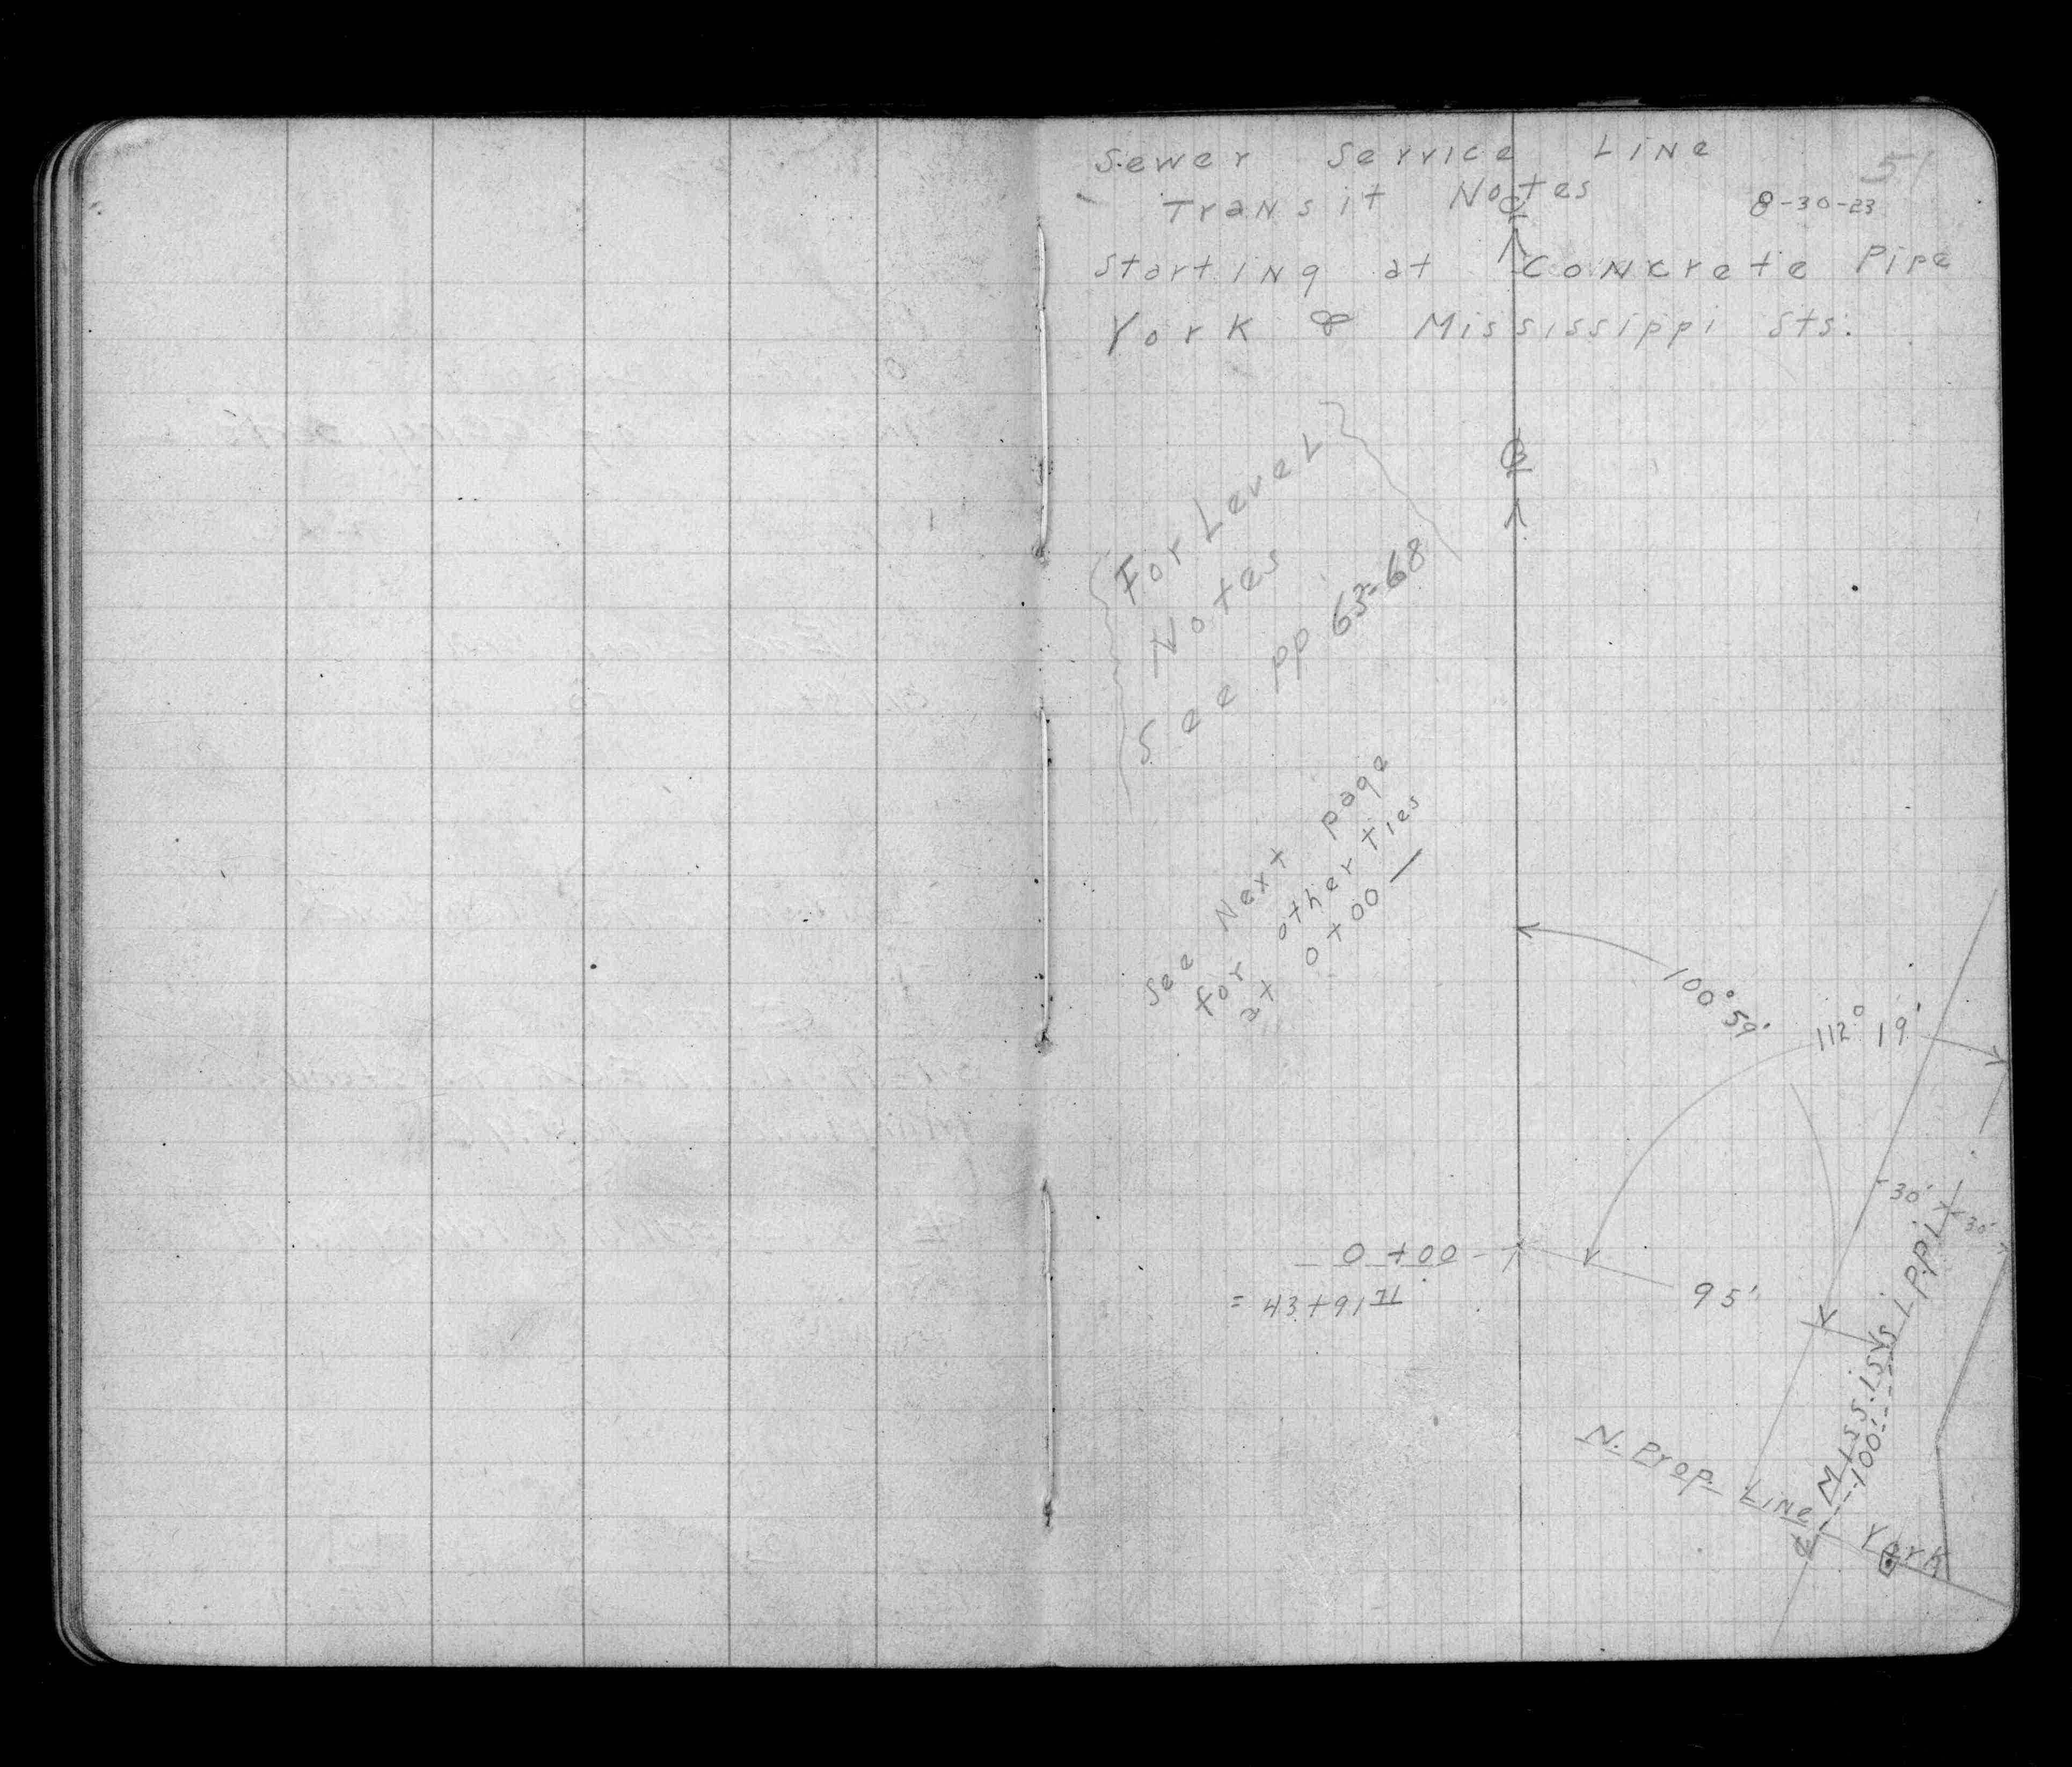 51
Sewer Service Line
Transit Notes
8-30-23
Starting at Concrete Pipe
York & Mississippi Sts.
For Level
Notes
See pp 63-68
See Next page
for other ties
at 0+00
100° 59'
112° 19'
30'
30'
0+00
= 43+91
95'
Mississippi
100'
N. Prop. Line
York